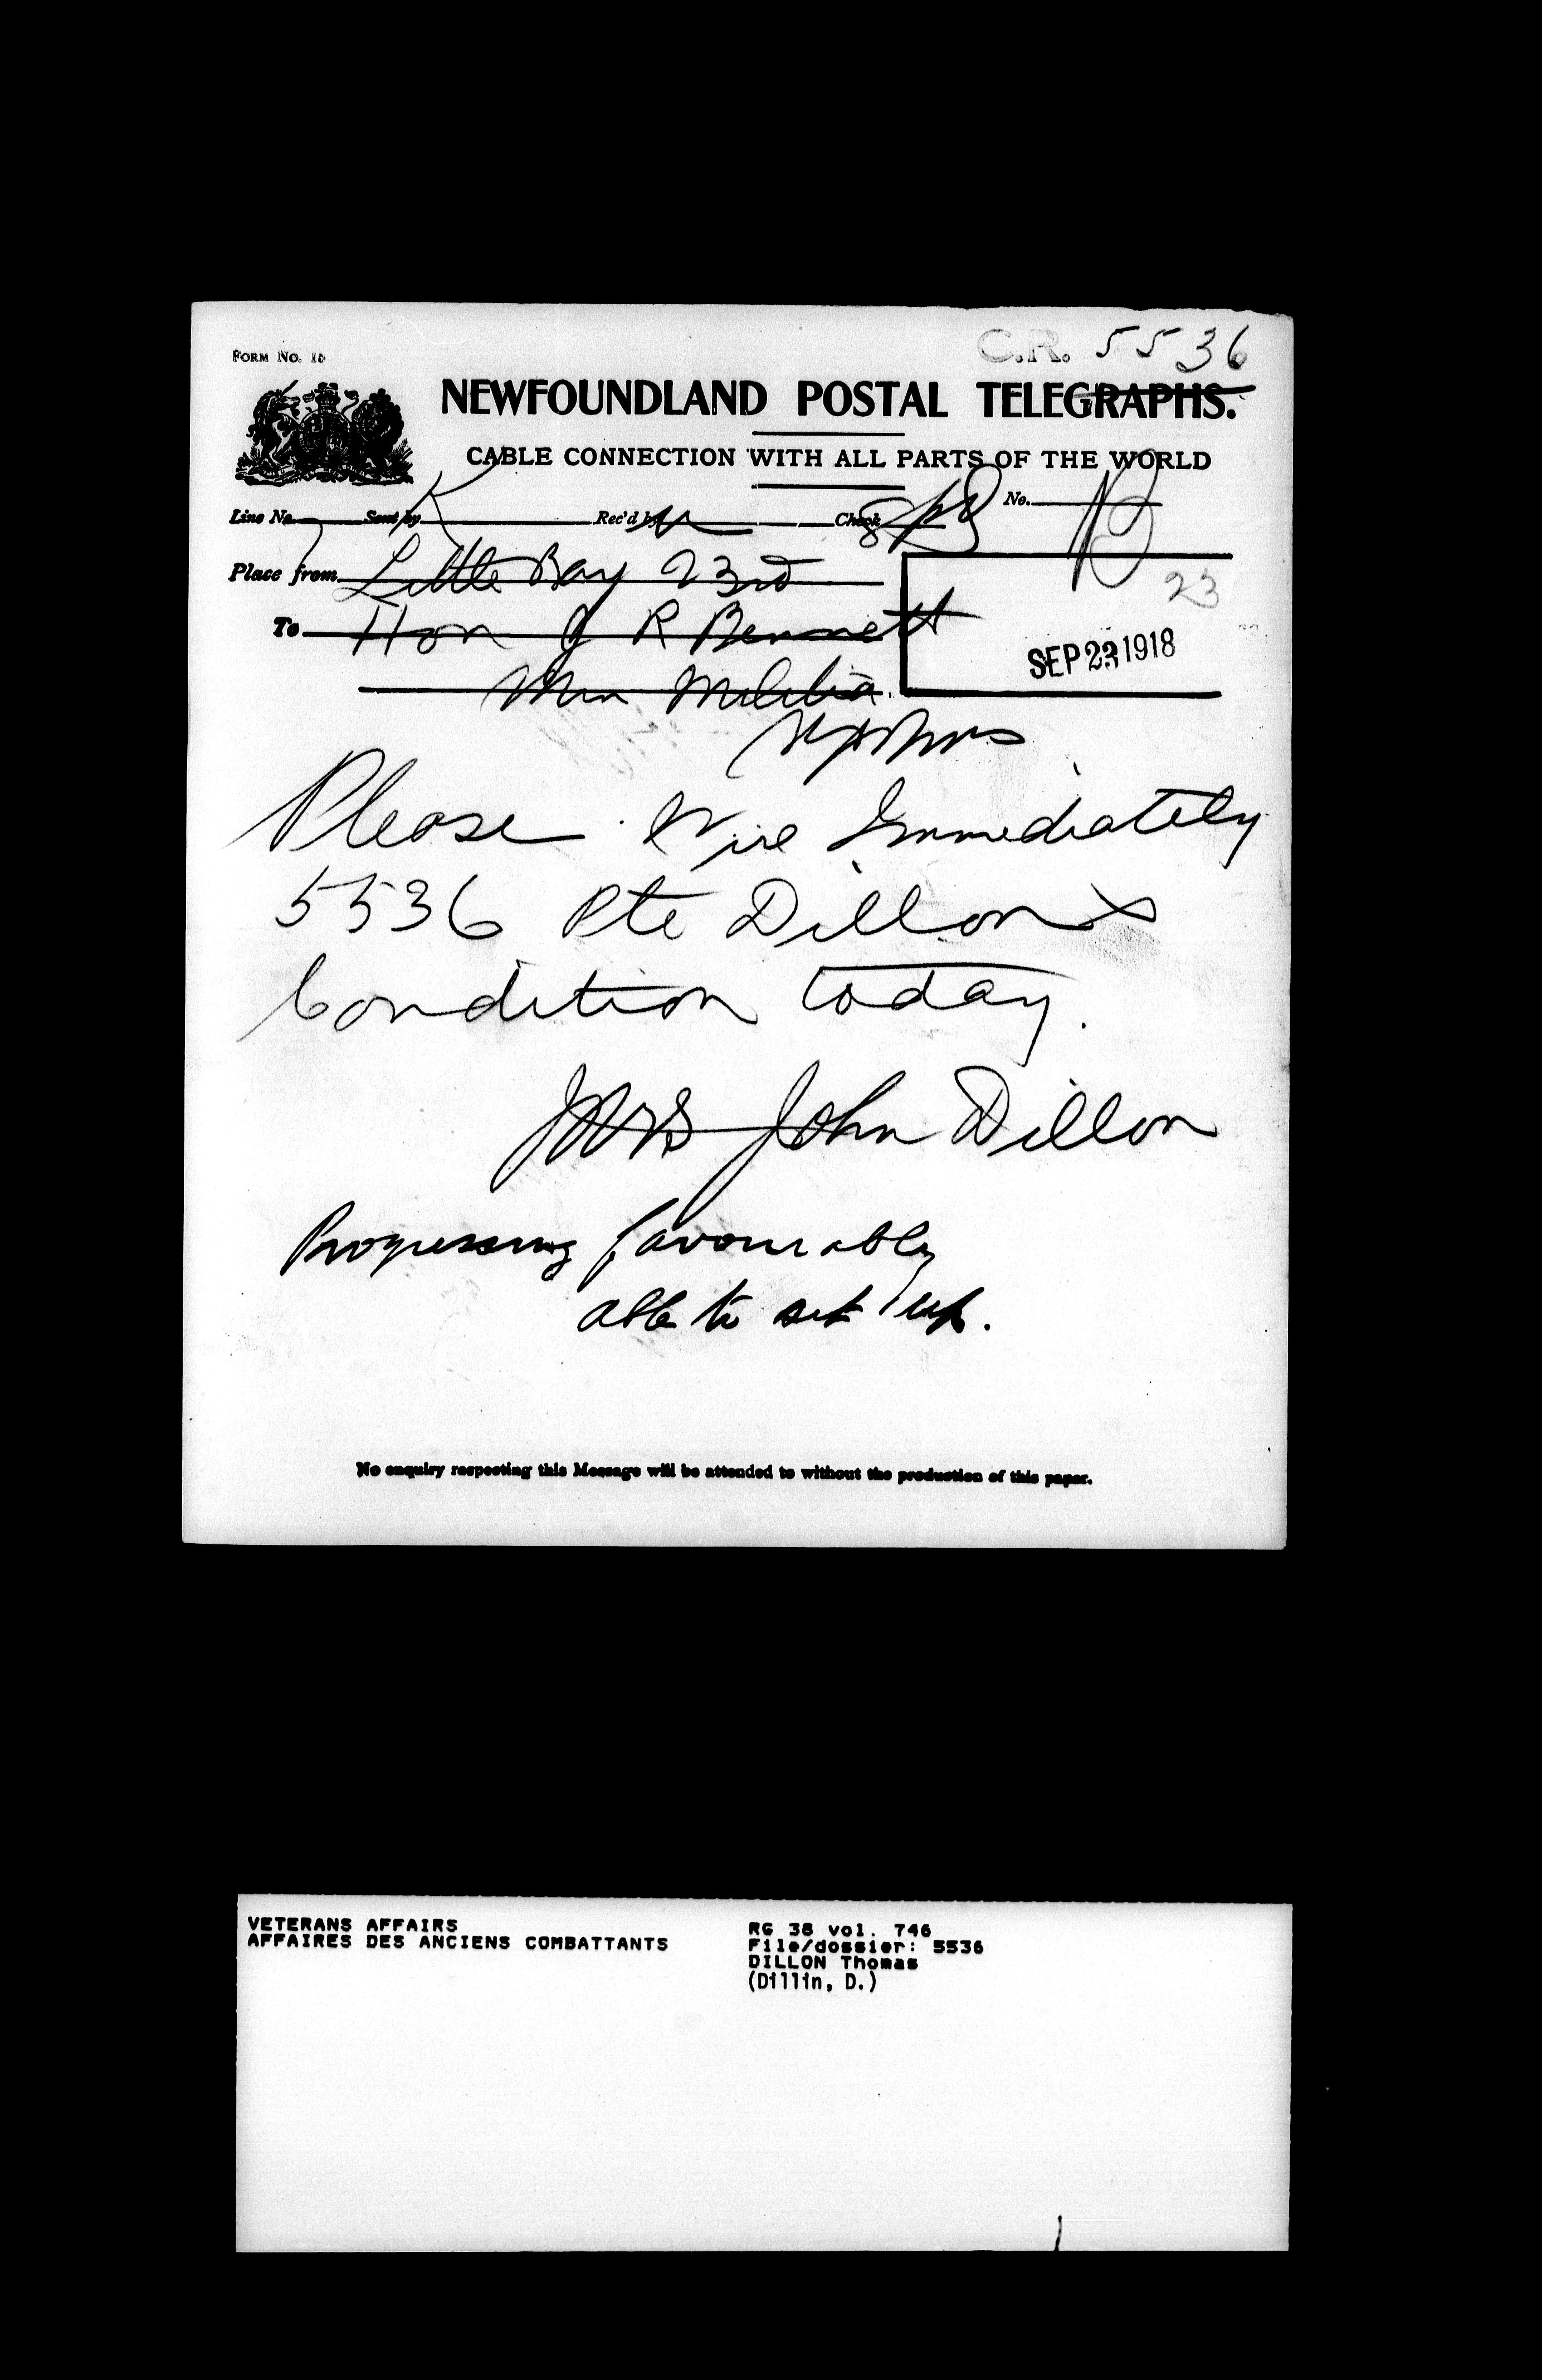 C.R. 5536
FORM No. 16
NEWFOUNDLAND POSTAL TELEGRAPHS.
CABLE CONNECTION WITH ALL PARTS OF THE WORLD
Line No. Sent by Rec'd by Check No.
Place from Little Bay 23rd
23
To Hon J R Bennett
SEP 23 1918
Min Militia
Please Wire Immediately
5536 Pte Dillons
Condition today.
Mrs John Dillon
Progressing favourably
able to sit up.
No enquiry respecting this Message will be attended to without the production of this paper.
VETERANS AFFAIRS
AFFAIRES DES ANCIENS COMBATTANTS
RG 38 vol. 746
File/dossier: 5536
DILLON Thomas
(Dillin, D.)